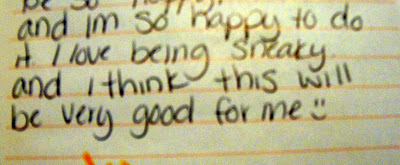 be so happy
and im so happy to do
it I love being sneaky
and i think this will
be very good for me :)